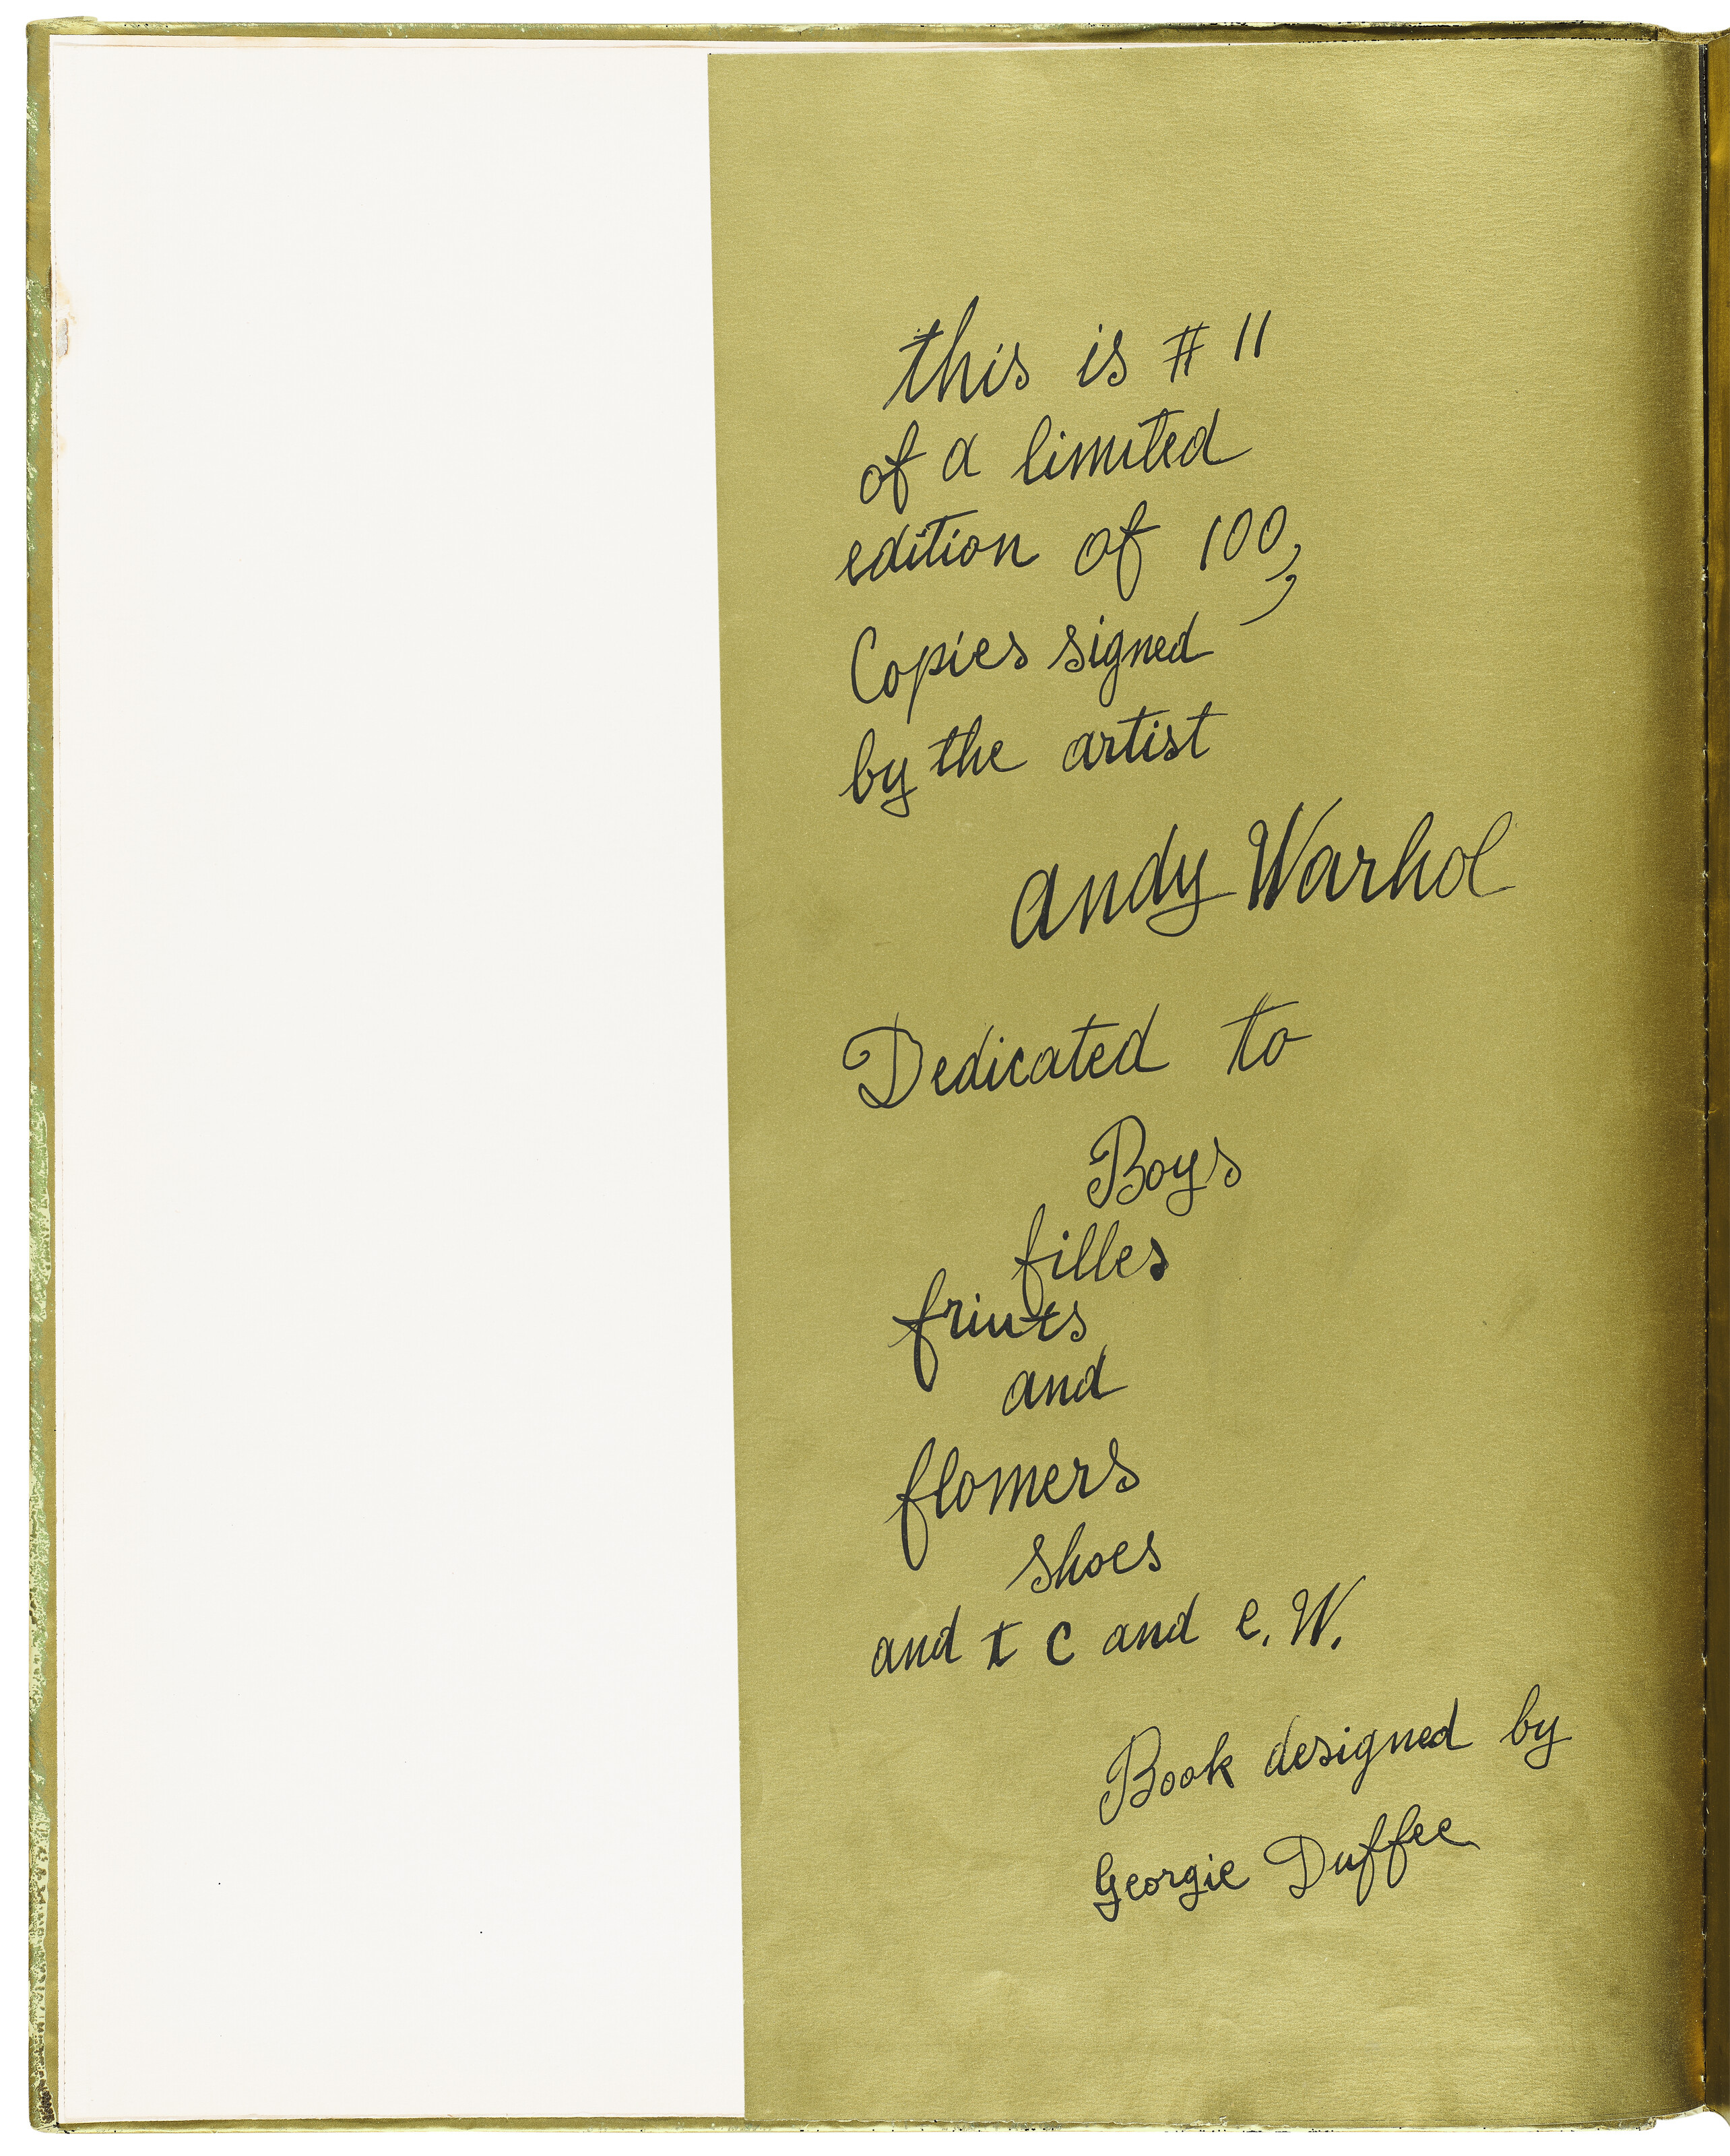 this is # 11
of a limited
edition of 100,
Copies signed
by the artist
Andy Warhol
Dedicated to
Boys
filles
friuts
and
flomers
shoes
and t c and e. W.
Book designed by
Georgie Duffee